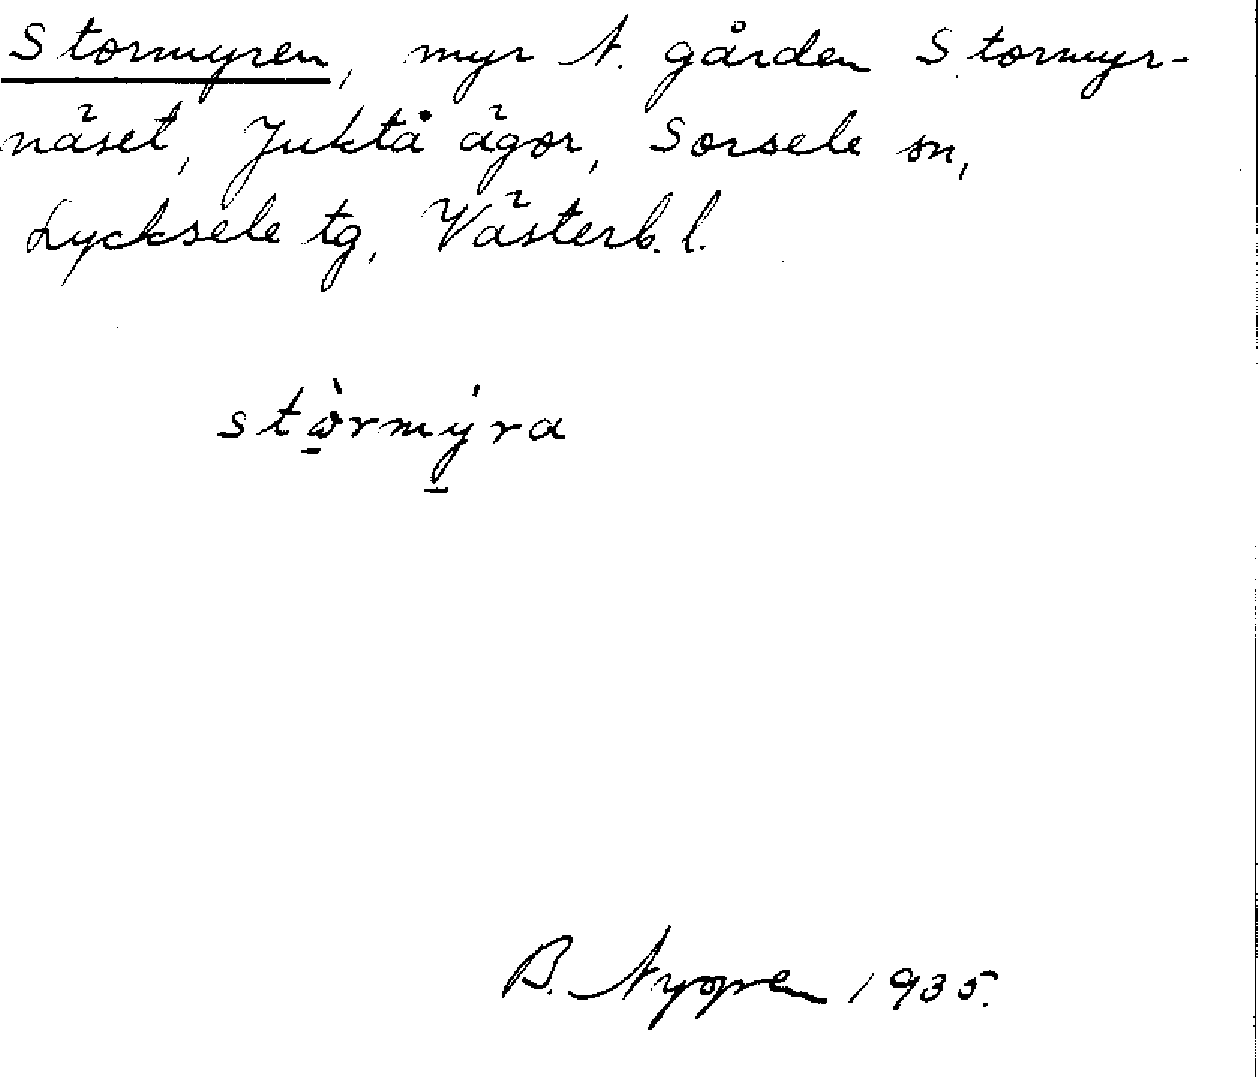 Stormyren, myr N. gården Stormyr-
näset, Juktå ägor, Sorsele sn,
Lycksele tg, Västerb. l.
stòrmýra
B. 1935.